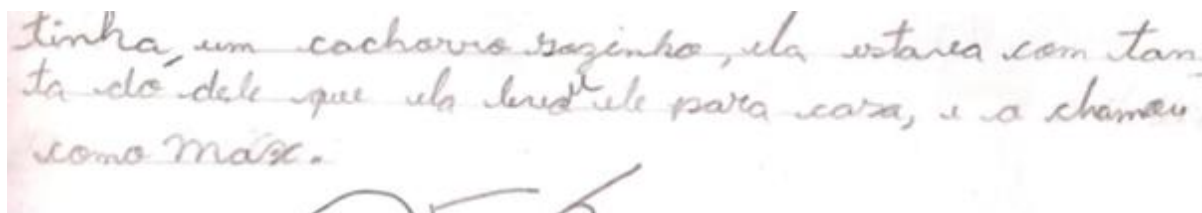 tinha, um cachorro sozinho, ela estava com tan
ta dó dele que ela levou ele para casa, e o chamou
como Máx.